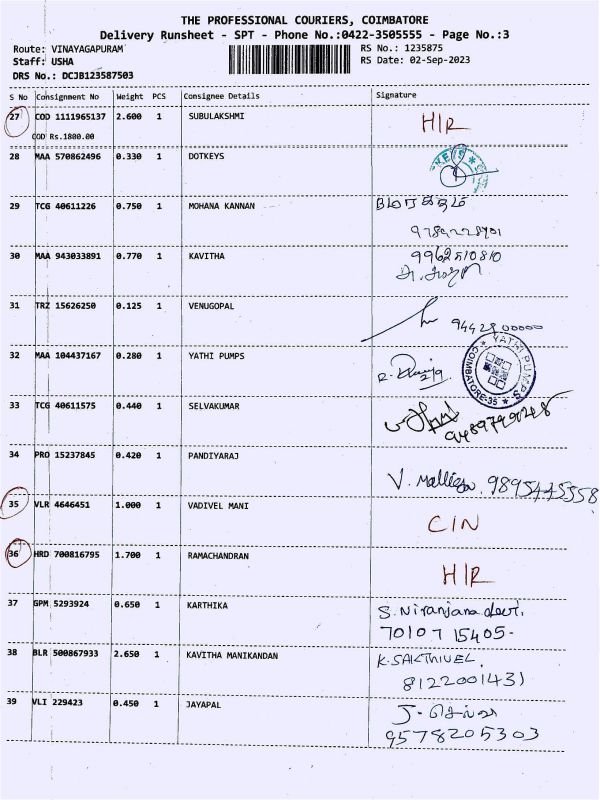 THE PROFESSIONAL COURIERS, COIMBATORE
Delivery Runsheet - SPT - Phone No.:0422-3505555 - Page No.:3
Route: VINAYAGAPURAM RS No.: 1235875
Staff: USHA RS Date: 02-Sep-2023
DRS No.: DCJB123587503
S No Consignment No Weight PCS Consignee Details Signature
27 COD 1111965137 2.600 1 SUBULAKSHMI H/R
COD Rs.1800.00
28 MAA 570862496 0.330 1 DOTKEYS
29 TCG 40611226 0.750 1 MOHANA KANNAN
30 MAA 943033891 0.770 1 KAVITHA 9962510810
31 TRZ 15626250 0.125 1 VENUGOPAL
32 MAA 104437167 0.280 1 YATHI PUMPS YATHI PUMPS COIMBATORE-35
2/9
33 TCG 40611575 0.440 1 SELVAKUMAR
34 PRO 15237845 0.420 1 PANDIYARAJ
V. Malliga 9895445558
35 VLR 4646451 1.000 1 VADIVEL MANI
CIN
36 HRD 700816795 1.700 1 RAMACHANDRAN
H/R
37 GPM 5293924 0.650 1 KARTHIKA S. Niranjana devi.
70107 15405-
38 BLR 500867933 2.650 1 KAVITHA MANIKANDAN K. SAKTHIVEL,
8122001431
39 VLI 229423 0.450 1 JAYAPAL J. செல்வி
9578205303